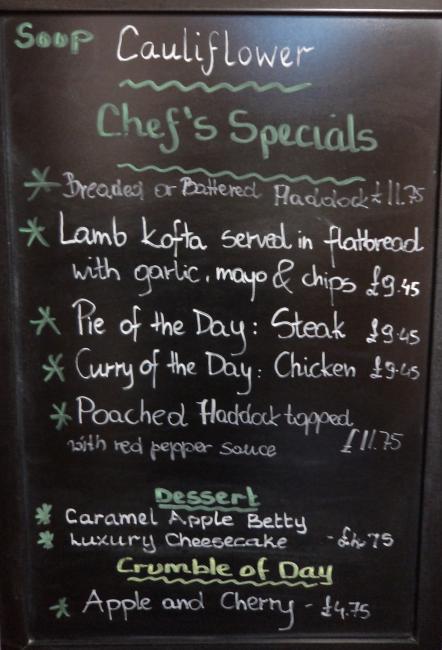 Soup Cauliflower
Chef's Specials
* Breaded or Battered Haddock £11.75
* Lamb Kofta served in flatbread
with garlic, mayo & chips £9.45
* Pie of the Day: Steak £9.45
* Curry of the Day: Chicken £9.45
* Poached Haddock topped
with red pepper sauce £11.75
Dessert
* Caramel Apple Betty
* Luxury Cheesecake - £4.75
Crumble of Day
* Apple and Cherry - £4.75